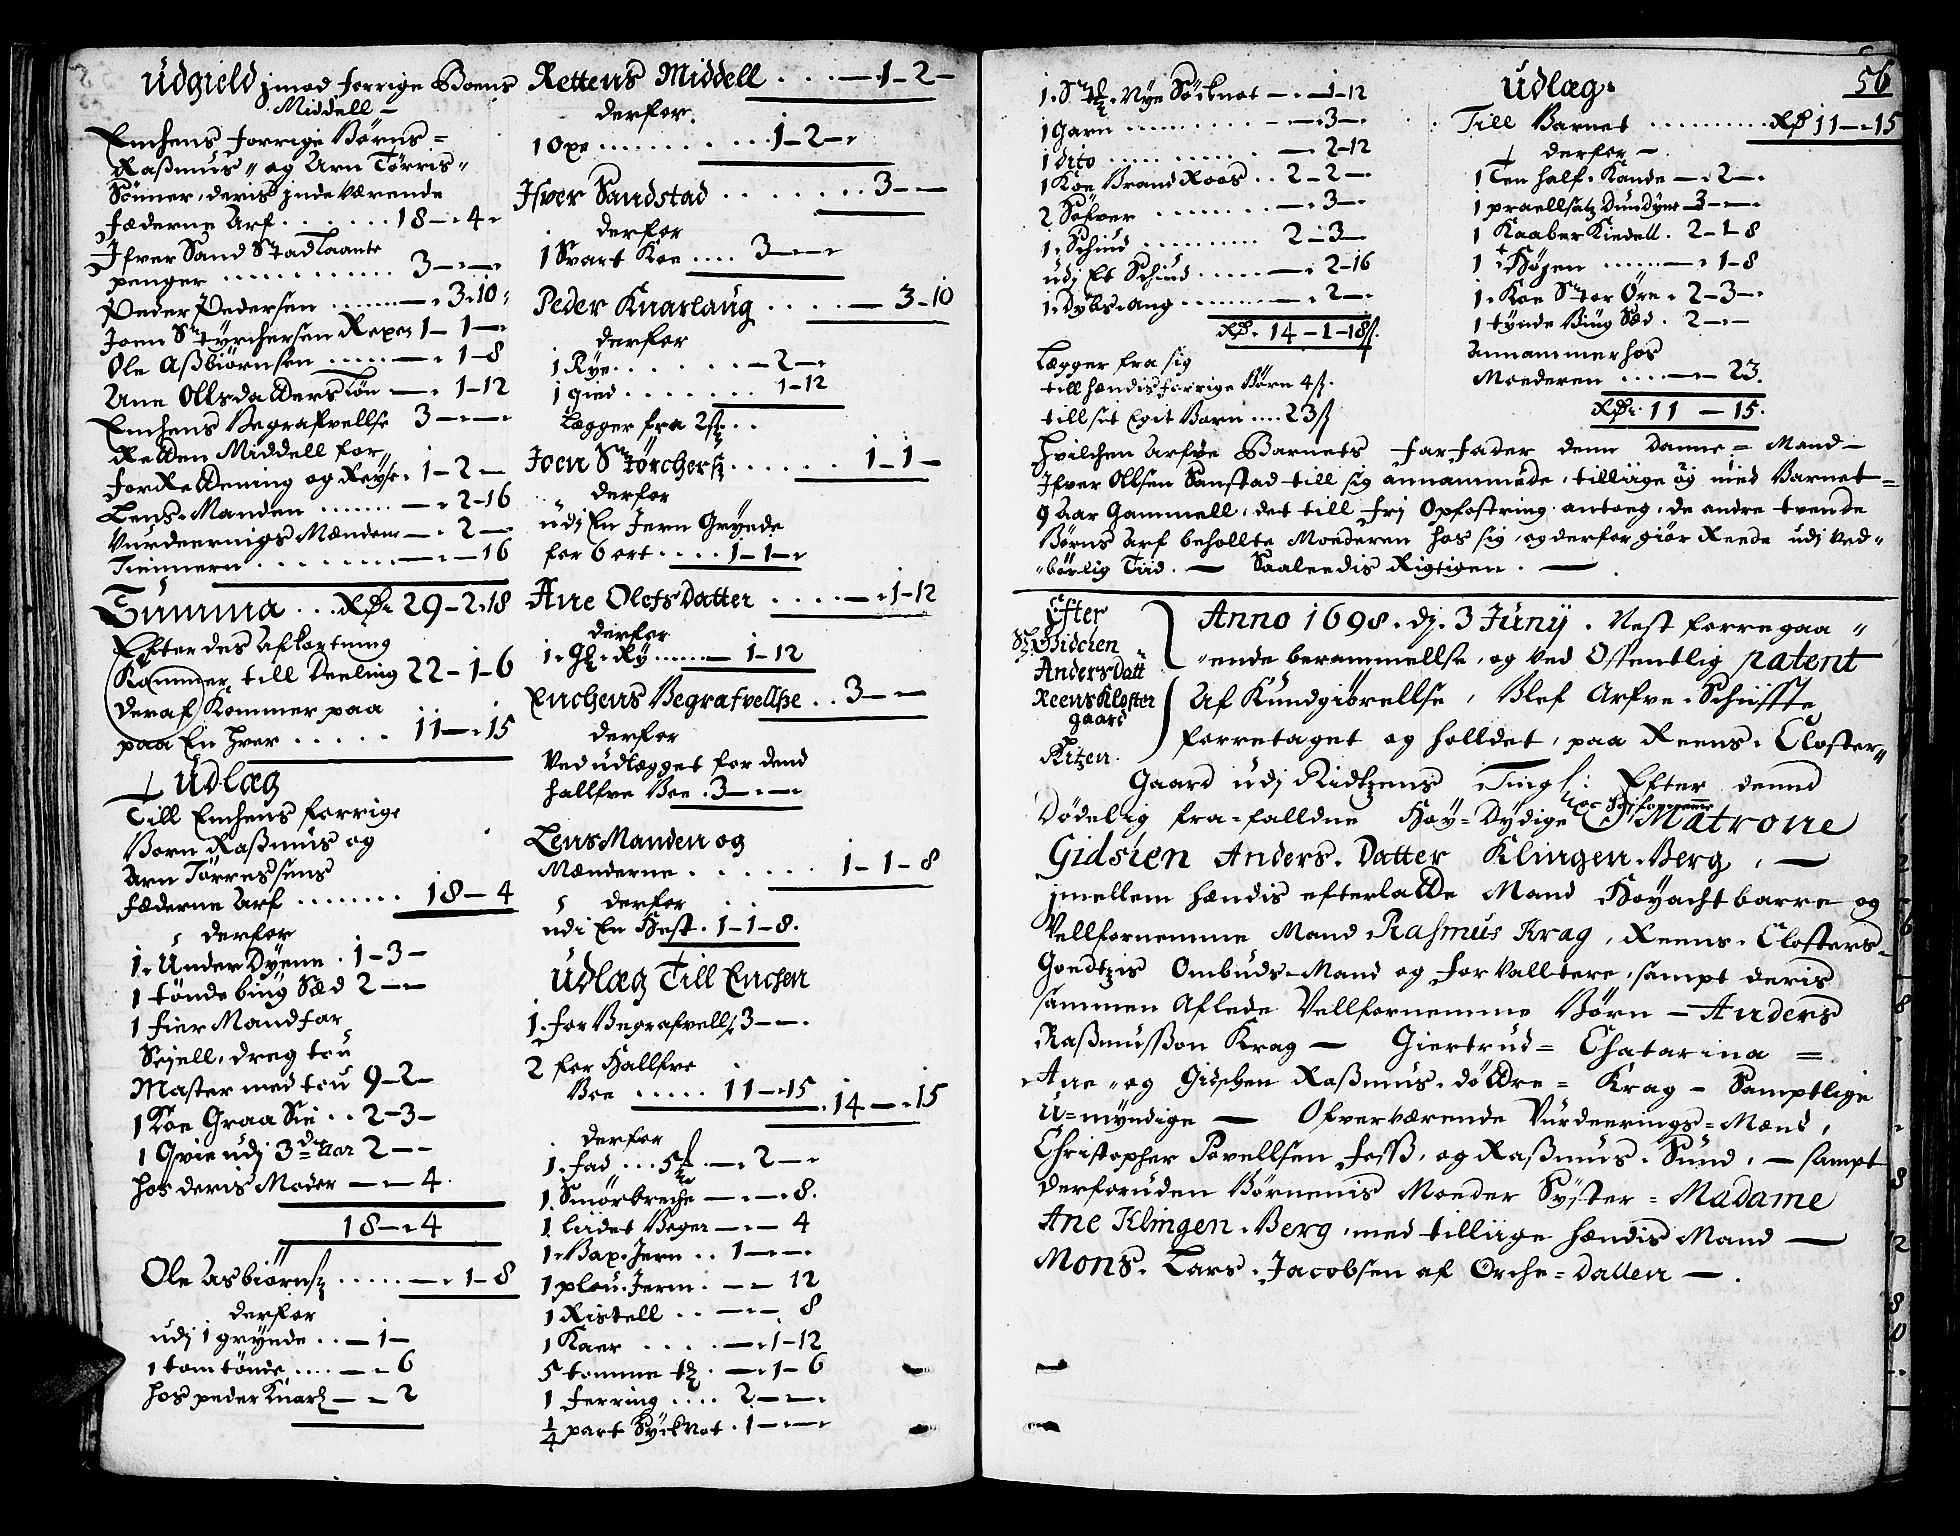 Udgield jmod forrige Boens
Middell -
Enchens forrige Børns =
Raßmus " og Arn Törris "
Sönner, deris jndeværende
Fæderne Arf . . . . . . . 18 - " 4 "
Ifver Sand Stad Laante
penger . . . . . . . . . . . . 3 - " -
Peder Pedersen . . . . . - " 3 " 10 "
Joen Styrchersen Repen 1 - 1 - "
Ole Aßbiørnsen . . . . . - " 1 - 8
Ane Ollsdalderstön - " 1 - 12
Enchens Begrafvellse 3 - " - "
Retten Middell for
forRettening og Reyse " 1 - 2 -
Lens-Manden . . . . . . - " 2 - 16
Vurdeernigs Mændene - " 2 -
Tienneren . . . . . . . . . - " - 16
Summa . . . RD: 29 - 2 " 18
Efter des Afkortning
Kommer till Deeling 22 - 1 - 6
deraf Kommer paa
paa En hver . . . . . 11 - " 15
Udlæg
Till Enchens forrige
Børn Raßmus og
Arn Törressens
fæderne Arf . . . . . . . . 18 - 4
derfor
1 " Under Dyene . 1 - 3 -
1 tönde biug Sæd 2 - -
1 fier Mandfar
Seyell, dreg tou
Master med tou 9 - 2 -
1 Koe Graa Sie . . 2 - 3 -
1 Qvie udj 3de Aar 2 - -
hos deris Moder - - 4
18 - " 4
Ole Asbiørns: . . . . . - " 1 - 8
derfor
udj 1 grynde . . - 1 -
1 tom tönde . . . . - " 6
hos peder Knarl: - " 2
Rettens Middell . . . - 1 - 2 -
derfor
1 Oxe . . . . . . . . . . 1 - 2 - "
Ifver Sandstad . . . . . . . . 3 - -
derfor
1 Svart Koe . . . . 3 - " - "
Peder Knarlaug . . . . - 3 - 10
derfor
1 Rye . . . . . . . - 2 - "
1 gied . . . . . . . 1 - 12
Lægger fra 2 ß . .
Joen Störchers: . . . . . . 1 - 1 -
derfor
udj En Jern Grynde
for 6 ort . . . . 1 - 1 - "
Ane Olofs Datter . . . . - " 1 - 12
derfor
1 " Gl: Ry . . . . . . - 1 - 12
Enchens Begrafvellße . . 3 - -
derfor
Ved udlægget for dend
hallfve Boe . 3 - " - "
Lens Manden og
Mænderne . . . . . . . 1 - 1 - 8
derfor
udi En Hest . 1 - 1 - 8 .
Udlæg Till Enchen
1 . for Begrafvells: 3 - - .
2 for Hallfve
Boe . . . . . 11 - " 15 . 14 - " 15
derfor
1 . fad . . . 5 - " 2 - "
1 . Smörbreche - " - " 8 .
1 . liidet Beger - " - 4
1 " Bax-Jern . . 1 - " - "
1 plou-Jern . - - 12
1 Ristell . . - " - . 8
1 Kaer . . . . - " 1 - 12
5 tomme t: . - " 1 - 6
1 ferring . . . . 2 - " - "
1/4 part Sycknot . 1 - " - "
1 . St: Nye Söcknot - " - 1 - 12
1 Garn . . . . . . . . . . - " 3 - "
1 dito . . . . . . . . . . . - " 2 - 12
1 Koe Brand Roos . . 2 - 2 - "
2 Söfver . . . . . . . . - " 3 - "
1 . Schiud . . . . . . . . . . 2 - 3 -
udj Et Schiud . . . . . - " 2 - 16
1 . Dybs-ang . . . . . . . . - " 2 - "
RD: 14 - 1 - 18 ß.
Lægger fra sig
till hændis forrige Börn 4 ß.
till sit Egit Barn . . . . 23 ß
56
Udlæg.
Till Barnet . . . . . . . . . . RD 11 - " 15
derfor -
1 Ten half-Kande - " 2 - "
1 praellsatz Dundyne 3 - " -
1 Kaaber Kiedell . 2 - 1 - 8
1 Högen . . . . . . - " 1 - 8
1 " Koe Stor Öre " 2 - 3 - "
1 tynde Biug Sæd . 2 - " -
Annammer hos
Moederen . . . . - " - 23
RD: 11 - 15 .
hvilchen Arfve Barnets far-fader denn Danne = Mand -
Ifver Ollsen Sanstad till sig annammede, tilliige og med Barnet =
9 Aar Gammell, det till frj Opfostring antoeg, de andre tvende
Börns Arf behollte Moederen hos sig, og derfor giör Reede udj Ved "
" börlig Tiid . - Saaleedis Rigtigen . -
Efter
Sl: Gidsien
Anders Datt
Reens Kloster
gaard
Ritzen .
Anno 1698 . dj . 3 Junij . Nest forregaa "
" ende berammellse, og ved Offentlig patent
Af Kundgiörellse, Blef Arfve-Schiffte
forretaget og holldet, paa Reens . Closter "
Gaard udj Ridtzens Tingl: Efter dennd
Dödelig fra-falldne Hoy-Dydige Matrone
Gidsien Anders . Datter Klingen-Berg , -
jmellem hændis efterlatte Mand Höyachtbarre og
Vellfornemme Mand Rasmus Krag , Reens . Closters
Goedtzis Ombuds-Mand og forvalltere, sampt deris
sammen Aflede Vellfornemme Börn - Anders
Raßmusson Krag - Giertrud = Chatarina =
Ane " og Gidschen Raßmus . döttre = Krag - Samptlige
U = myndige - Ofververende Vurdeerings = Mænd ,
Christopher Povellsen Foss, og Raßmus . Sund , - sampt
derforuden Börnenis Moeder Syster = Madame
Ane Klingen-Berg , med tilliige hændis Mand -
Mons . Lars . Jacobsen af Orche = dallen - .